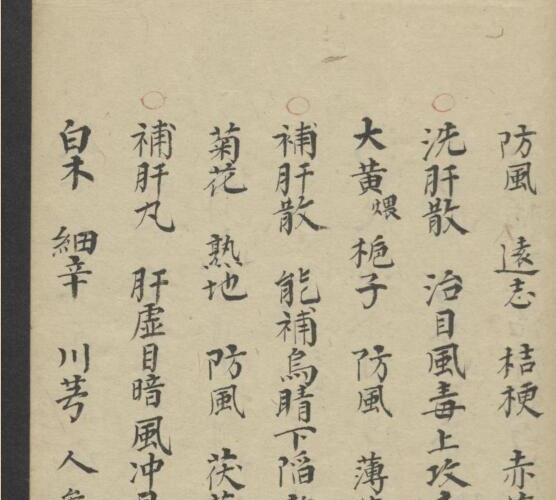 防風 遠志 桔梗 赤
洗肝散 治目風毒上攻
大黄煨 梔子 防風 薄
補肝散 能補烏睛下陷
菊花 熟地 防風 茯
補肝丸 肝虛目暗風冲
白术 細辛 川芎 人